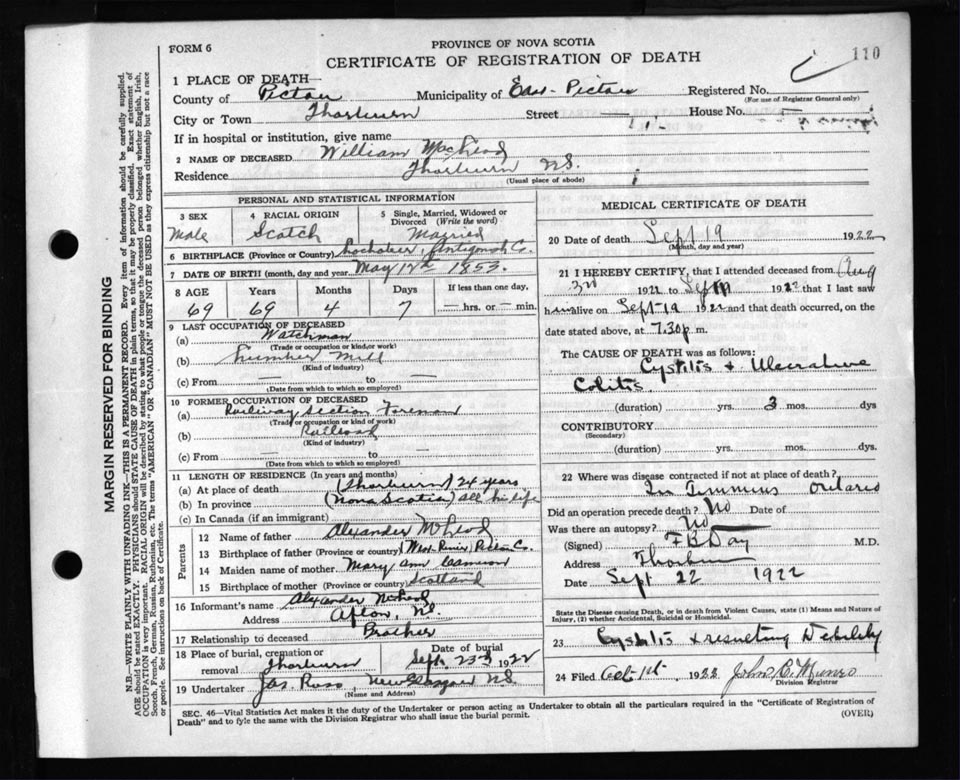 FORM 6
PROVINCE OF NOVA SCOTIA
CERTIFICATE OF REGISTRATION OF DEATH
110
1 PLACE OF DEATH—
County of Pictou Municipality of East Pictou Registered No.
(For use of Registrar General only)
City or Town Thorburn Street — House No. —
If in hospital or institution, give name
2 NAME OF DECEASED William McLeod
Residence Thorburn N.S.
(Usual place of abode)
PERSONAL AND STATISTICAL INFORMATION
3 SEX
Male
4 RACIAL ORIGIN
Scotch
5 Single, Married, Widowed or Divorced (Write the word)
Married
6 BIRTHPLACE (Province or Country) Lochaber, Antigonish Co.
7 DATE OF BIRTH (month, day and year) May 12th 1853.
8 AGE Years Months Days If less than one day,
69 69 4 7 — hrs. or — min.
9 LAST OCCUPATION OF DECEASED
(a) Watchman
(Trade or occupation or kind of work)
(b) Lumber Mill
(Kind of industry)
(c) From — to —
(Date from which to which so employed)
10 FORMER OCCUPATION OF DECEASED
(a) Railway Section Foreman
(Trade or occupation or kind of work)
(b) Railroad
(Kind of industry)
(c) From — to —
(Date from which to which so employed)
11 LENGTH OF RESIDENCE (In years and months)
(a) At place of death (Thorburn) 24 years
(b) In province (Nova Scotia) all his life
(c) In Canada (if an immigrant)
Parents
12 Name of father Alexander McLeod
13 Birthplace of father (Province or country) (West River) Pictou Co.
14 Maiden name of mother Mary Ann Cameron
15 Birthplace of mother (Province or country) Scotland
16 Informant's name Alexander McLeod
Address Afton, N.S.
17 Relationship to deceased Brother
18 Place of burial, cremation or removal Thorburn
Date of burial Sept. 23rd 1922
19 Undertaker Jas Ross New Glasgow N.S.
(Name and Address)
MEDICAL CERTIFICATE OF DEATH
20 Date of death Sept 19 1922
(Month, day and year)
21 I HEREBY CERTIFY, that I attended deceased from Aug
3rd 1922 to Sept 1922 that I last saw
him alive on Sept-19 1922 and that death occurred, on the
date stated above, at 7.30 p m.
The CAUSE OF DEATH was as follows:
Cystitis & Ulcerative
Colitis
(duration) yrs. 3 mos. dys
CONTRIBUTORY
(Secondary)
(duration) yrs. mos. dys.
22 Where was disease contracted if not at place of death?
In Timmins Ontario
Did an operation precede death? No Date of
Was there an autopsy? No
(Signed) F B Day M.D.
Address Thorburn
Date Sept 22 1922
State the Disease causing Death, or in death from Violent Causes, state (1) Means and Nature of
Injury, (2) whether Accidental, Suicidal or Homicidal.
23 Cystitis & resulting Debility
24 Filed Oct 1st 1922 John C. Munro
Division Registrar
SEC. 46—Vital Statistics Act makes it the duty of the Undertaker or person acting as Undertaker to obtain all the particulars required in the "Certificate of Registration of
Death" and to fyle the same with the Division Registrar who shall issue the burial permit.
(OVER)
MARGIN RESERVED FOR BINDING
N.B.—WRITE PLAINLY WITH UNFADING INK—THIS IS A PERMANENT RECORD. Every item of information should be carefully supplied.
AGE should be stated EXACTLY. PHYSICIANS should STATE CAUSE OF DEATH in plain terms, so that it may be properly classified. Exact statement of
OCCUPATION is very important. RACIAL ORIGIN will be described by stating to what people or tongue the deceased person belonged whether English, Irish,
Scotch, French, German, Russian, Ruthenian, etc. The terms "AMERICAN" OR "CANADIAN" MUST NOT BE USED as they express citizenship but not a race
or people. See instructions on back of Certificate.